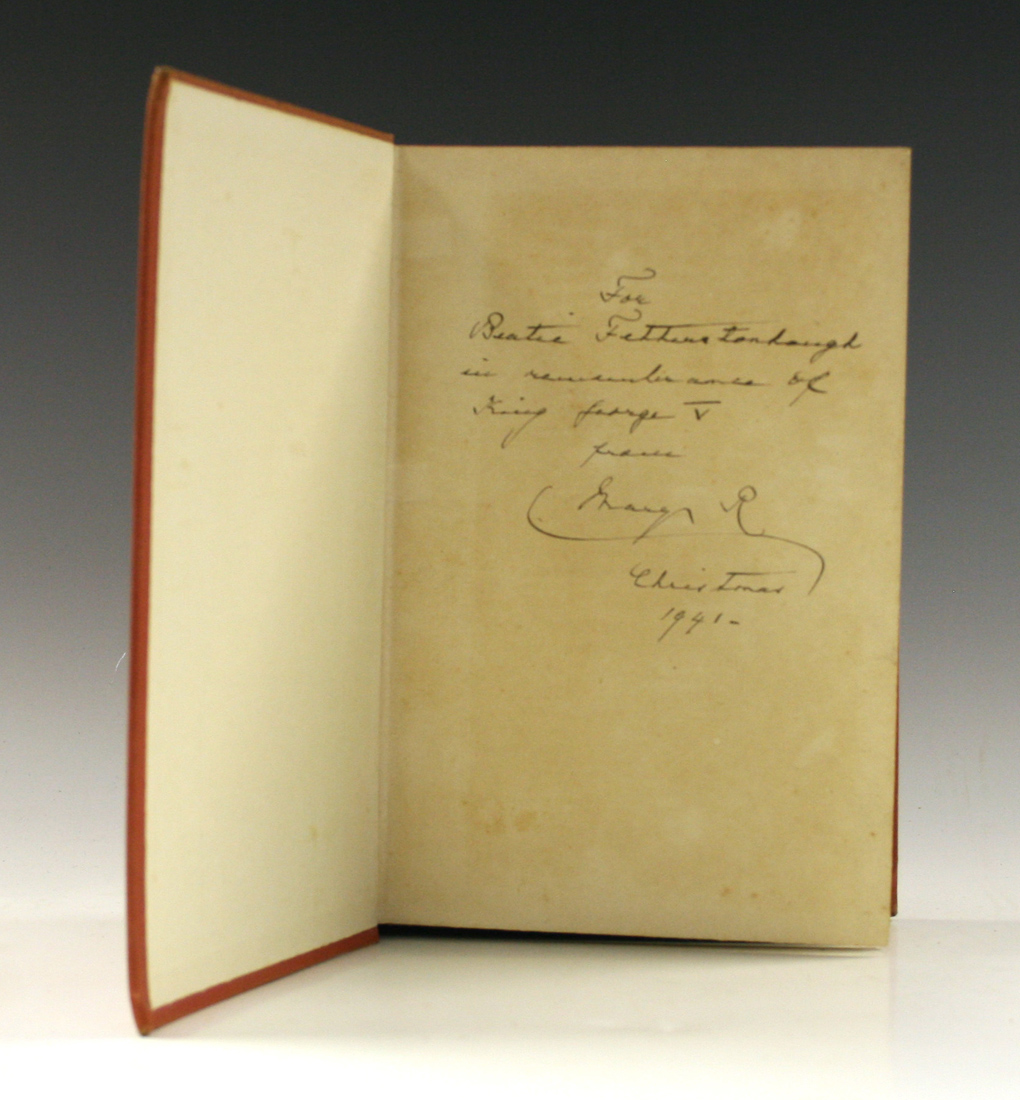 For
Beatie Fetherstonhaugh
in remembrance of
King George V
from
Mary R.
Christmas
1941-